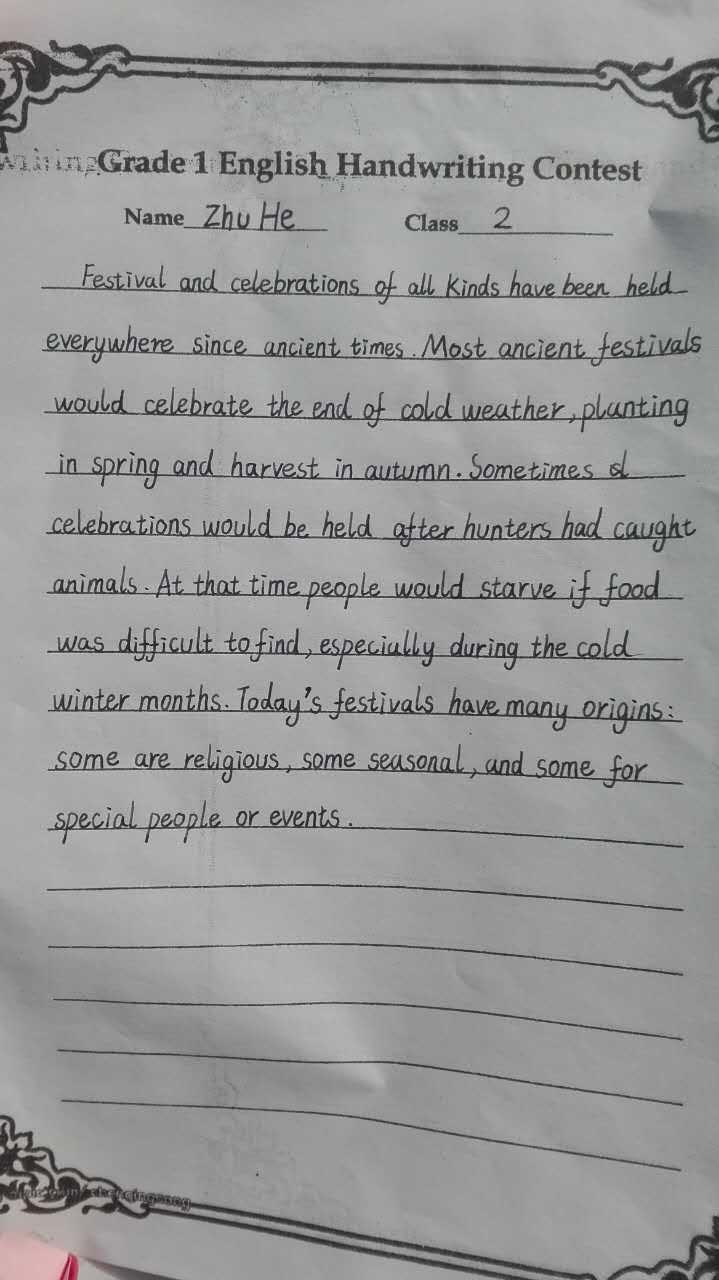 Grade 1 English Handwriting Contest
Name Zhu He Class 2
Festival and celebrations of all kinds have been held
everywhere since ancient times. Most ancient festivals
would celebrate the end of cold weather, planting
in spring and harvest in autumn. Sometimes
celebrations would be held after hunters had caught
animals. At that time people would starve if food
was difficult to find, especially during the cold
winter months. Today's festivals have many origins:
some are religious, some seasonal, and some for
special people or events.